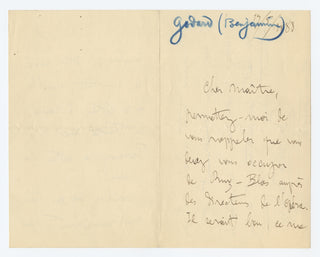 Godard (Benjamin) 83
Cher Maître,
Permettez-moi de
vous rappeler que vous
devez vous occuper
de Ruy-Blas auprès
des Directeurs de l'opéra.
Il serait bon, ce me